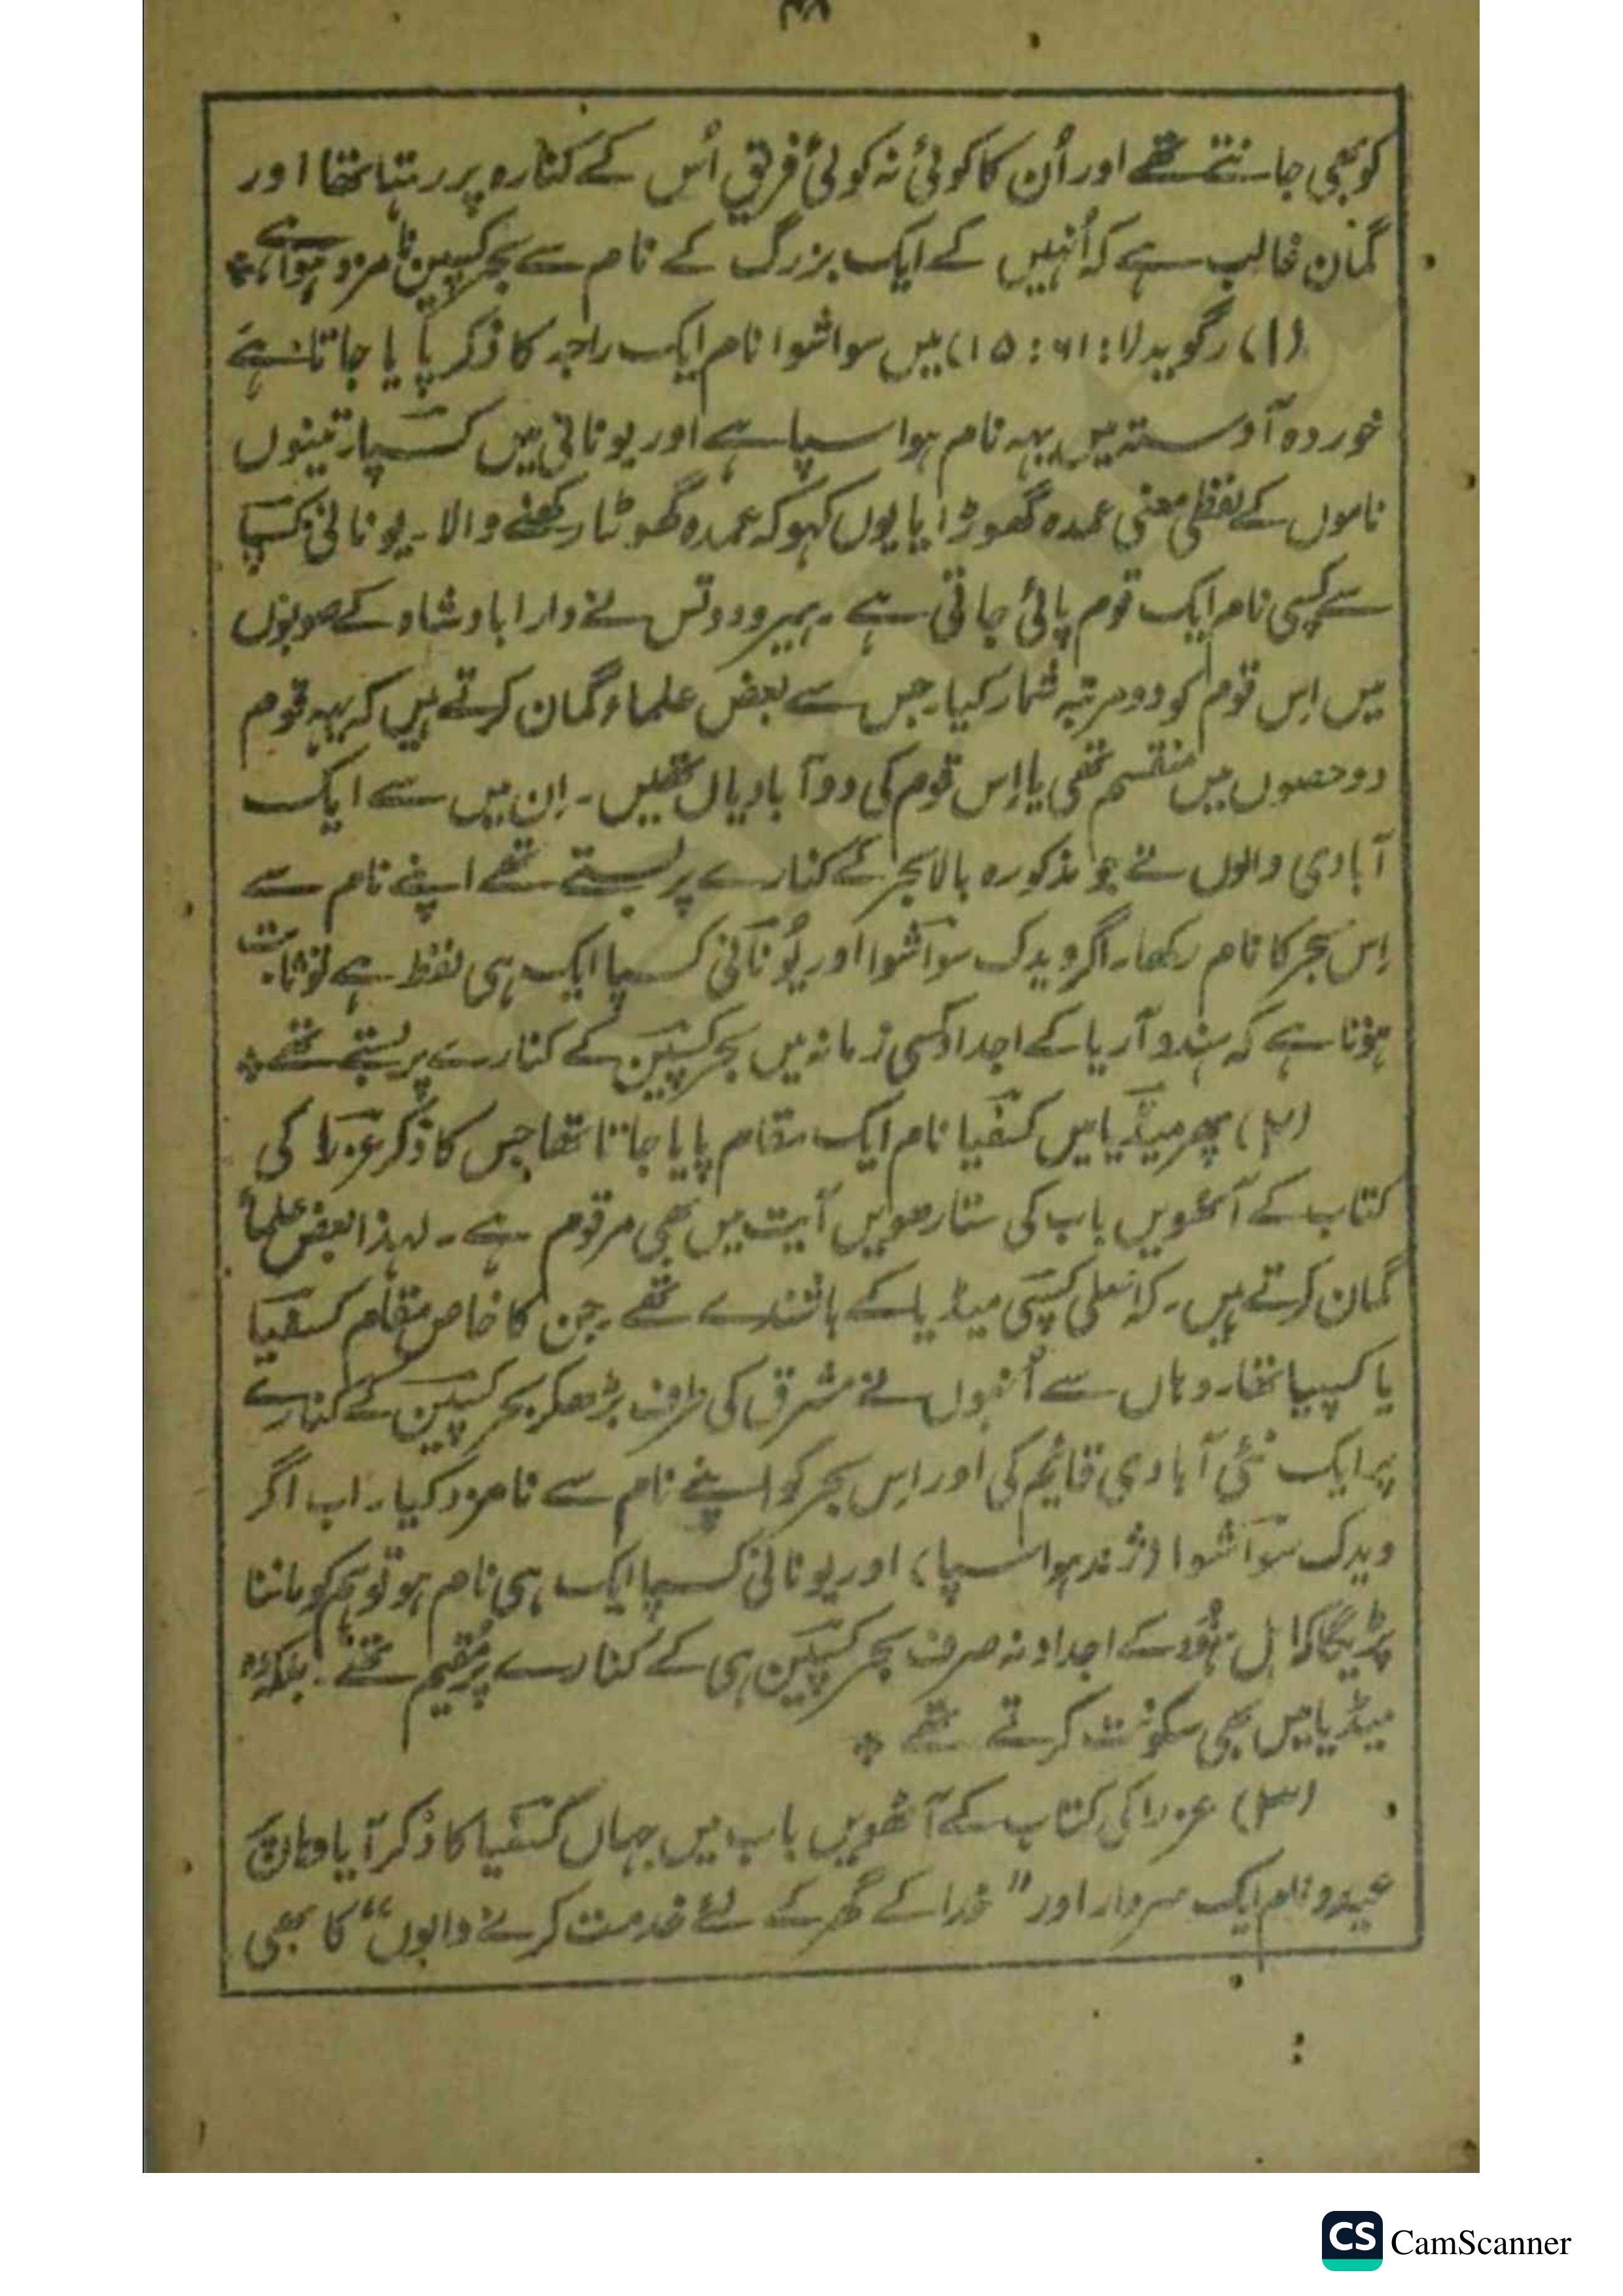 کو بھی جانتے تھے اور اُن کا کوئی نہ کوئی فریق اُس کے کنارہ پر رہتا تھا اور
گمان غالب ہے کہ اُنہیں کے ایک بزرگ کے نام سے بحر کسپین نامزد ہوا ہے۔
(۱) رگوید ۱۵:۶۱:۷) میں سواشوا نام ایک راجہ کا ذکر پایا جاتا ہے
خوردہ آوستہ میں یہہ نام ہواسپا ہے اور یونانی میں کسپا۔ تینوں
ناموں کے لفظی معنی عمدہ گھوڑا یا یوں کہو کہ عمدہ گھوڑا رکھنے والا۔ یونانی کسپا
سے کسپی نام ایک قوم پائی جاتی ہے۔ ہیرودوتس نے دارا بادشاہ کے صوبوں
میں اِس قوم کو دو مرتبہ شمار کیا۔ جس سے بعض علماء گمان کرتے ہیں کہ یہہ قوم
دو حصوں میں منقسم تھی یا اِس قوم کی دو آبادیاں تھیں۔ اِن میں سے ایک
آبادی والوں نے جو مذکورہ بالا بحر کے کنارے پر بستے تھے اپنے نام سے
اِس بحر کا نام رکھا۔ اگر ویدک سواشوا اور یُونانی کسپا ایک ہی لفظ ہے تو ثابت
ہوتا ہے کہ ہندو آریا کے اجداد کسی زمانہ میں بحر کسپین کے کنارے پر بستے تھے۔
(۲) پھر میڈیا میں کسفیا نام ایک مقام پایا جاتا تھا جس کا ذکر عزرا کی
کتاب کے آٹھویں باب کی ستارھویں آیت میں بھی مرقوم ہے۔ لہذا بعض علماء
گمان کرتے ہیں۔ کہ اصلی کسپی میڈیا کے باشندے تھے۔ جن کا خاص مقام کسفیا
یا کسپیا تھا۔ وہاں سے اُنہوں نے مشرق کی طرف بڑھکر بحر کسپین کے کنارے
پر ایک نئی آبادی قائم کی اور اِس بحر کو اپنے نام سے نامزد کیا۔ اب اگر
ویدک سواشوا (ژند ہواسپا) اور یونانی کسپا ایک ہی نام ہو تو ہم کو ماننا
پڑیگا کہ اہل ہنود کے اجداد نہ صرف بحر کسپین ہی کے کنارے پر مُقیم تھے۔ بلکہ وہ
میڈیا میں بھی سکونت کرتے تھے۔
(۳) عزرا کی کتاب کے آٹھویں باب میں جہاں کسفیا کا ذکر آیا وہاں پر
عیدو نام ایک سردار اور "خدا کے گھر کے لئے خدمت کرنے والوں" کا بھی
CS CamScanner